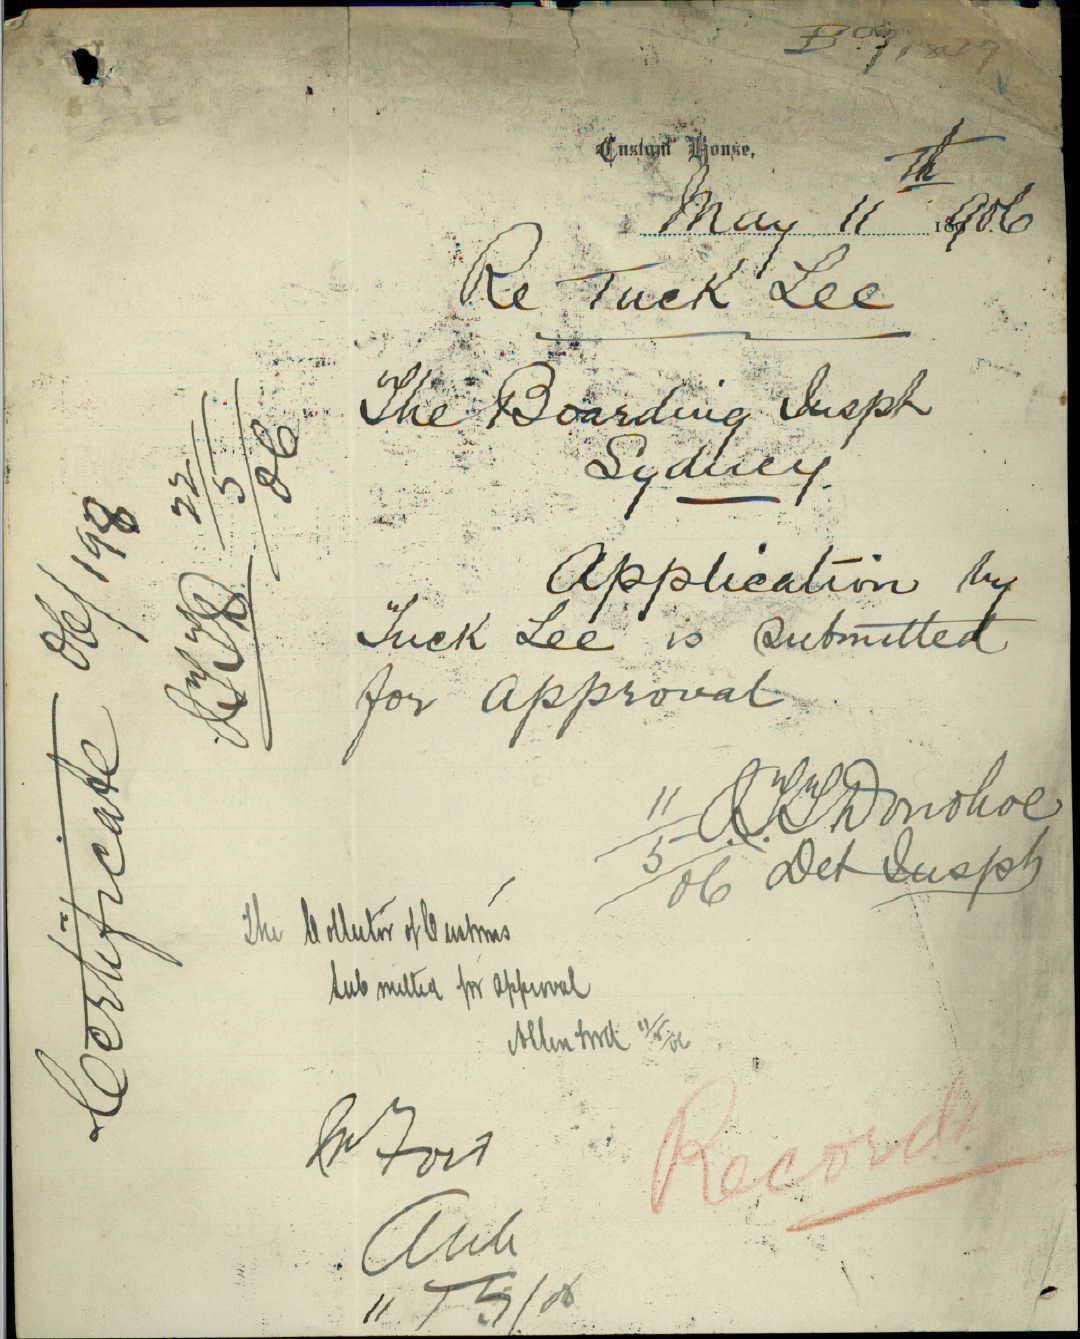 Custom House,
May 11th 1906
Re Tuck Lee
The Boarding Inspr
Sydney
Application by
Tuck Lee is submitted
for approval
Donohoe
11/5/06 Det Inspr
The Collector of Customs
Submitted for approval
11/5/06
Mr Fort
11/5/06
Records
Certificate 06/198
22/5/06